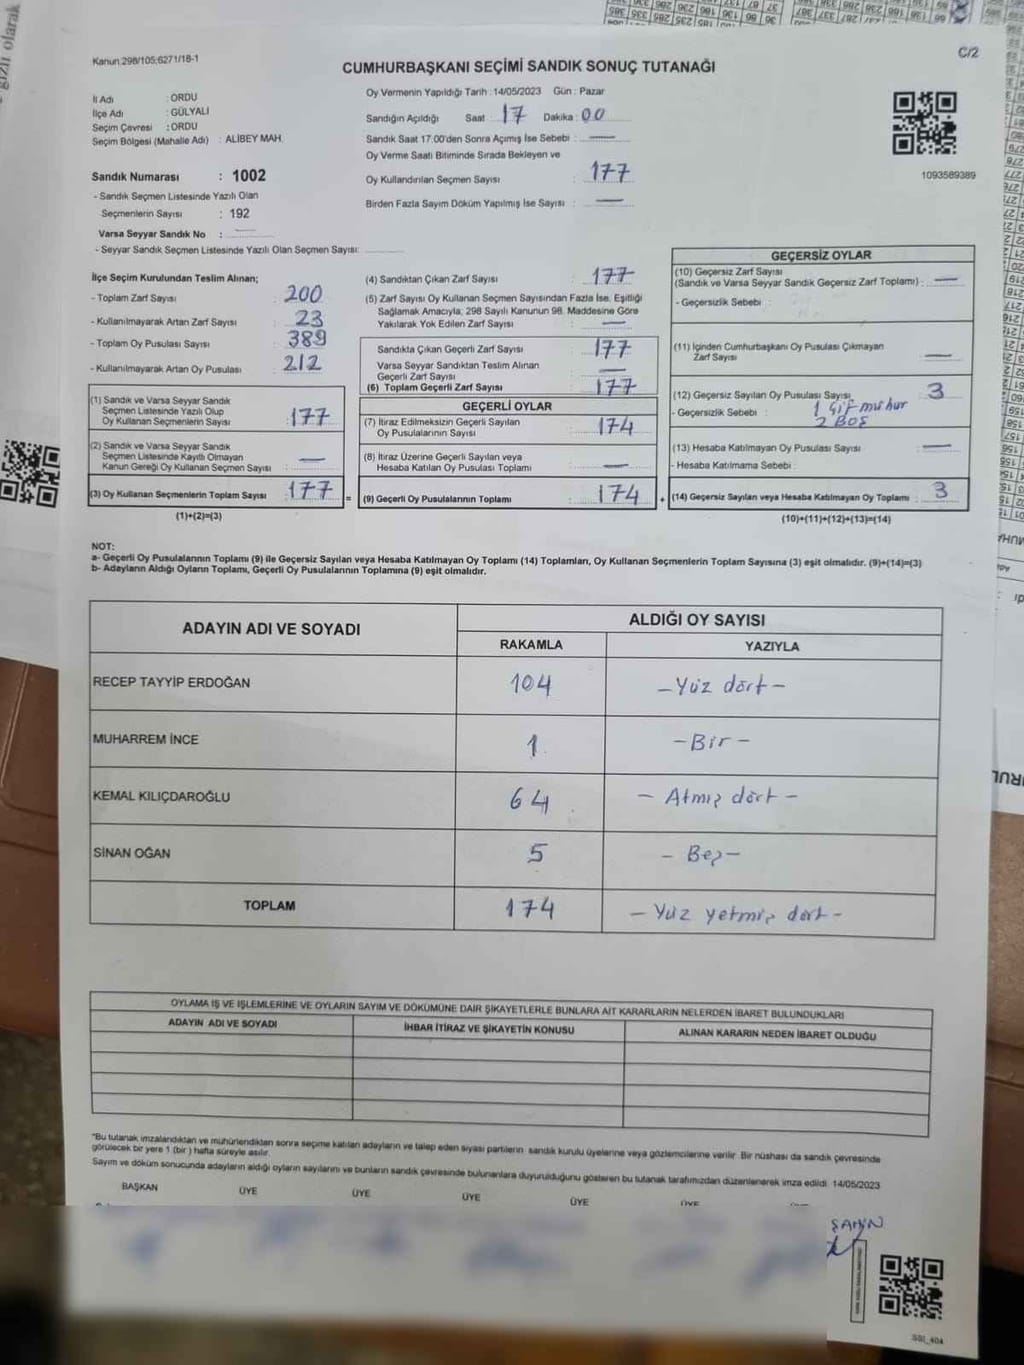 gizli olarak
Kanun:298/105;6271/18-1
C/2
CUMHURBAŞKANI SEÇİMİ SANDIK SONUÇ TUTANAĞI
İl Adı : ORDU
İlçe Adı : GÜLYALI
Seçim Çevresi : ORDU
Seçim Bölgesi (Mahalle Adı) : ALİBEY MAH.
Oy Vermenin Yapıldığı Tarih : 14/05/2023 Gün : Pazar
Sandığın Açıldığı Saat : 17 Dakika : 00
Sandık Saat 17:00'den Sonra Açımış İse Sebebi : —
Oy Verme Saati Bitiminde Sırada Bekleyen ve
Oy Kullandırılan Seçmen Sayısı : 177
Birden Fazla Sayım Döküm Yapılmış İse Sayısı : —
1093589389
Sandık Numarası : 1002
- Sandık Seçmen Listesinde Yazılı Olan
Seçmenlerin Sayısı : 192
Varsa Seyyar Sandık No : —
- Seyyar Sandık Seçmen Listesinde Yazılı Olan Seçmen Sayısı:
İlçe Seçim Kurulundan Teslim Alınan;
- Toplam Zarf Sayısı : 200
- Kullanılmayarak Artan Zarf Sayısı : 23
- Toplam Oy Pusulası Sayısı : 389
- Kullanılmayarak Artan Oy Pusulası : 212
(1) Sandık ve Varsa Seyyar Sandık
Seçmen Listesinde Yazılı Olup
Oy Kullanan Seçmenlerin Sayısı : 177
(2) Sandık ve Varsa Seyyar Sandık
Seçmen Listesinde Kayıtlı Olmayan
Kanun Gereği Oy Kullanan Seçmen Sayısı : —
(3) Oy Kullanan Seçmenlerin Toplam Sayısı : 177 =
(1)+(2)=(3)
(4) Sandıktan Çıkan Zarf Sayısı : 177
(5) Zarf Sayısı Oy Kullanan Seçmen Sayısından Fazla İse, Eşitliği
Sağlamak Amacıyla; 298 Sayılı Kanunun 98. Maddesine Göre
Yakılarak Yok Edilen Zarf Sayısı : —
Sandıkta Çıkan Geçerli Zarf Sayısı : 177
Varsa Seyyar Sandıktan Teslim Alınan
Geçerli Zarf Sayısı : —
(6) Toplam Geçerli Zarf Sayısı : 177
GEÇERLİ OYLAR
(7) İtiraz Edilmeksizin Geçerli Sayılan
Oy Pusulalarının Sayısı : 174
(8) İtiraz Üzerine Geçerli Sayılan veya
Hesaba Katılan Oy Pusulası Toplamı : —
(9) Geçerli Oy Pusulalarının Toplamı : 174 +
GEÇERSİZ OYLAR
(10) Geçersiz Zarf Sayısı
(Sandık ve Varsa Seyyar Sandık Geçersiz Zarf Toplamı) : —
- Geçersizlik Sebebi :
(11) İçinden Cumhurbaşkanı Oy Pusulası Çıkmayan
Zarf Sayısı : —
(12) Geçersiz Sayılan Oy Pusulası Sayısı : 3
- Geçersizlik Sebebi : 1 Çift mühür
2 BOŞ
(13) Hesaba Katılmayan Oy Pusulası Sayısı : —
- Hesaba Katılmama Sebebi :
(14) Geçersiz Sayılan veya Hesaba Katılmayan Oy Toplamı : 3
(10)+(11)+(12)+(13)=(14)
NOT:
a- Geçerli Oy Pusulalarının Toplamı (9) ile Geçersiz Sayılan veya Hesaba Katılmayan Oy Toplamı (14) Toplamları, Oy Kullanan Seçmenlerin Toplam Sayısına (3) eşit olmalıdır. (9)+(14)=(3)
b- Adayların Aldığı Oyların Toplamı, Geçerli Oy Pusulalarının Toplamına (9) eşit olmalıdır.
ADAYIN ADI VE SOYADI
ALDIĞI OY SAYISI
RAKAMLA YAZIYLA
RECEP TAYYİP ERDOĞAN 104 - Yüz dört -
MUHARREM İNCE 1 - Bir -
KEMAL KILIÇDAROĞLU 64 - Atmış dört -
SİNAN OĞAN 5 - Beş -
TOPLAM 174 - Yüz yetmiş dört -
OYLAMA İŞ VE İŞLEMLERİNE VE OYLARIN SAYIM VE DÖKÜMÜNE DAİR ŞİKAYETLERLE BUNLARA AİT KARARLARIN NELERDEN İBARET BULUNDUKLARI
ADAYIN ADI VE SOYADI İHBAR İTİRAZ VE ŞİKAYETİN KONUSU ALINAN KARARIN NEDEN İBARET OLDUĞU
*Bu tutanak imzalandıktan ve mühürlendikten sonra seçime katılan adayların ve talep eden siyasi partilerin sandık kurulu üyelerine veya gözlemcilerine verilir. Bir nüshası da sandık çevresinde
görülecek bir yere 1 (bir ) hafta süreyle asılır.
Sayım ve döküm sonucunda adayların aldığı oyların sayılarını ve bunların sandık çevresinde bulunanlara duyurulduğunu gösteren bu tutanak tarafımızdan düzenlenerek imza edildi. 14/05/2023
BAŞKAN ÜYE ÜYE ÜYE ÜYE ÜYE
ŞAHİN